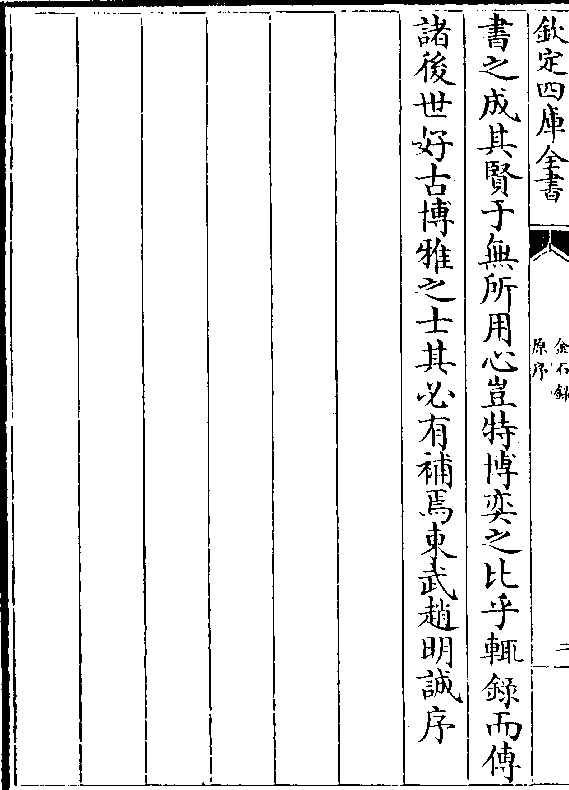 欽定四庫全書
金石録
原序
二
書之成其賢于無所用心豈特博奕之比乎輒錄而傳
諸後世好古博雅之士其必有補焉東武趙明誠序